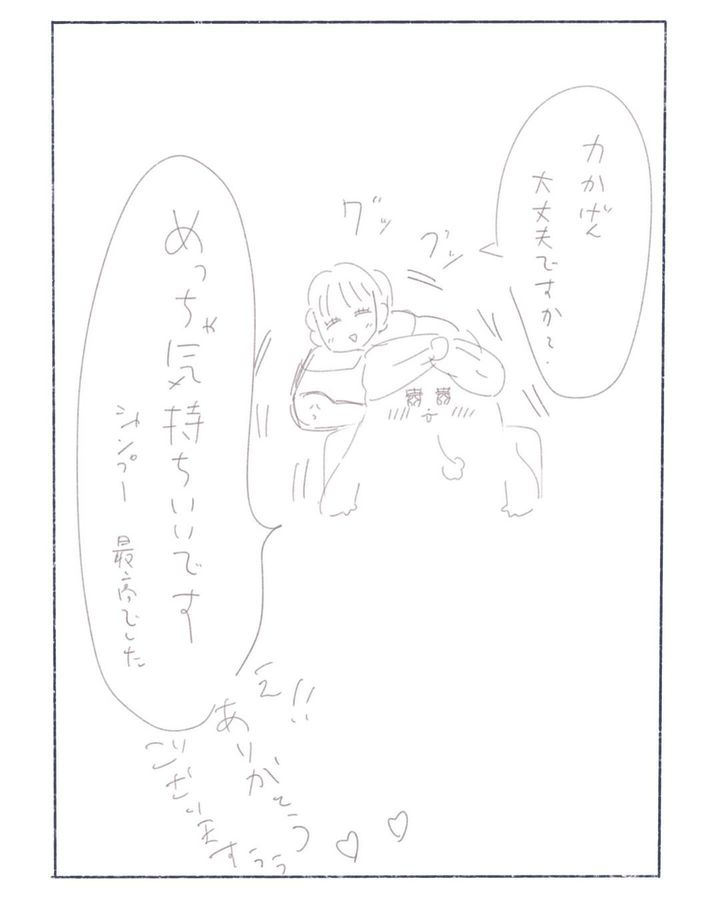 力かげん
大丈夫ですか?
グッ
グッ
めっちゃ気持ちいいです
シャンプー 最高でした
ありがとう
ございますぅぅ